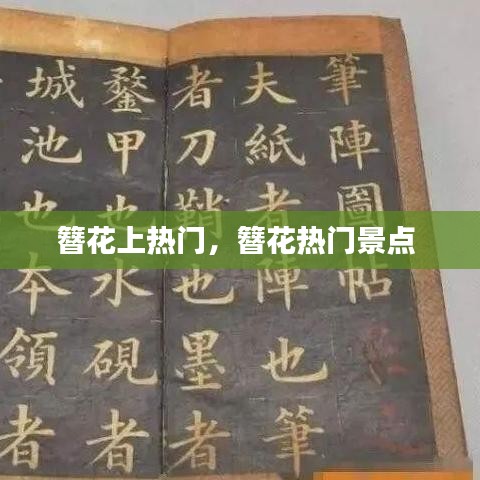 筆陣圖帖
夫紙者陣也筆
者刀鞘也墨者
鍪甲也水硯者
城池也本領者
簪花上热门，簪花热门景点